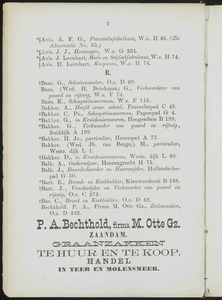 2
*§Avis. A. F. G., Patentoliefabrikant, W.z. H 46. (Zie
Advertentie No. 55.)
*§Avis. J. J., Houtzager, W.z. G 231.
*§Avis. J. Leonhart, Meel- en Stijfselfabrikant, W.z. H 74.
*§Avis. R. Leonhart, Koopman, W.z. H 74.
B.
*†Baas. G., Schuitenmaker, O.z. D 69.
Baas, (Wed. H. Brinkman) G., Verkoopster van
paard en rijtuig, W.z. F 76.
Baas, K., Schuitenaannemer, W.z. F 116.
*Bakker. A., Hoofd eener school, Franschepad C 45.
*Bakker. C. Pz., Schuitenaannemer, Papenpad G 4.
†Bakker. G., in Kruidenierswaren, Hoogendam B 199.
*Bakker. G., Verhuurder van paard en rijtuig,
Zuiddijk A 199.
*†Bakker. H. Jz., particulier, Hanenpad A 77.
Bakker, (Wed. Jb. van Bergo) M., particulier,
Westz. dijk L 1.
*†Bakker. D., in Kruidenierswaren, Westz. dijk L 46.
Balk. A., Onderwijzer, Hoornegracht H 75.
Balk, J., Broodbakker en Huurwijker, Hollandsche-
pad G 26.
*§Bart. E., Brood- en Koekbakker, Klauwershoek B 188.
*†Bart, J., Vrachtrijder en Verhuurder van paard en
rijtuig, O.z. C 272.
*†Bas. C., Brood- en Koekbakker, O.z. D 42.
Bechthold. P. A., Firma M. Otte Gz., Zakkenmaker,
O.z. D 242.
P. A. Bechthold, firma M. Otte Gz.
ZAANDAM.
GRAANZAKKEN
TE HUUR EN TE KOOP.
HANDEL
IN TEER EN MOLENSMEER.